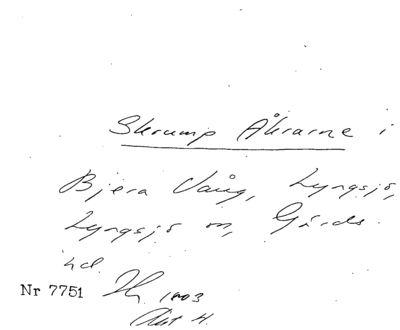 Skrump Åkrarne i
Bjera Vång, Lyngsjö,
Lyngsjö sn, Gärds
hd.
Nr 7751 1803
Akt 4.